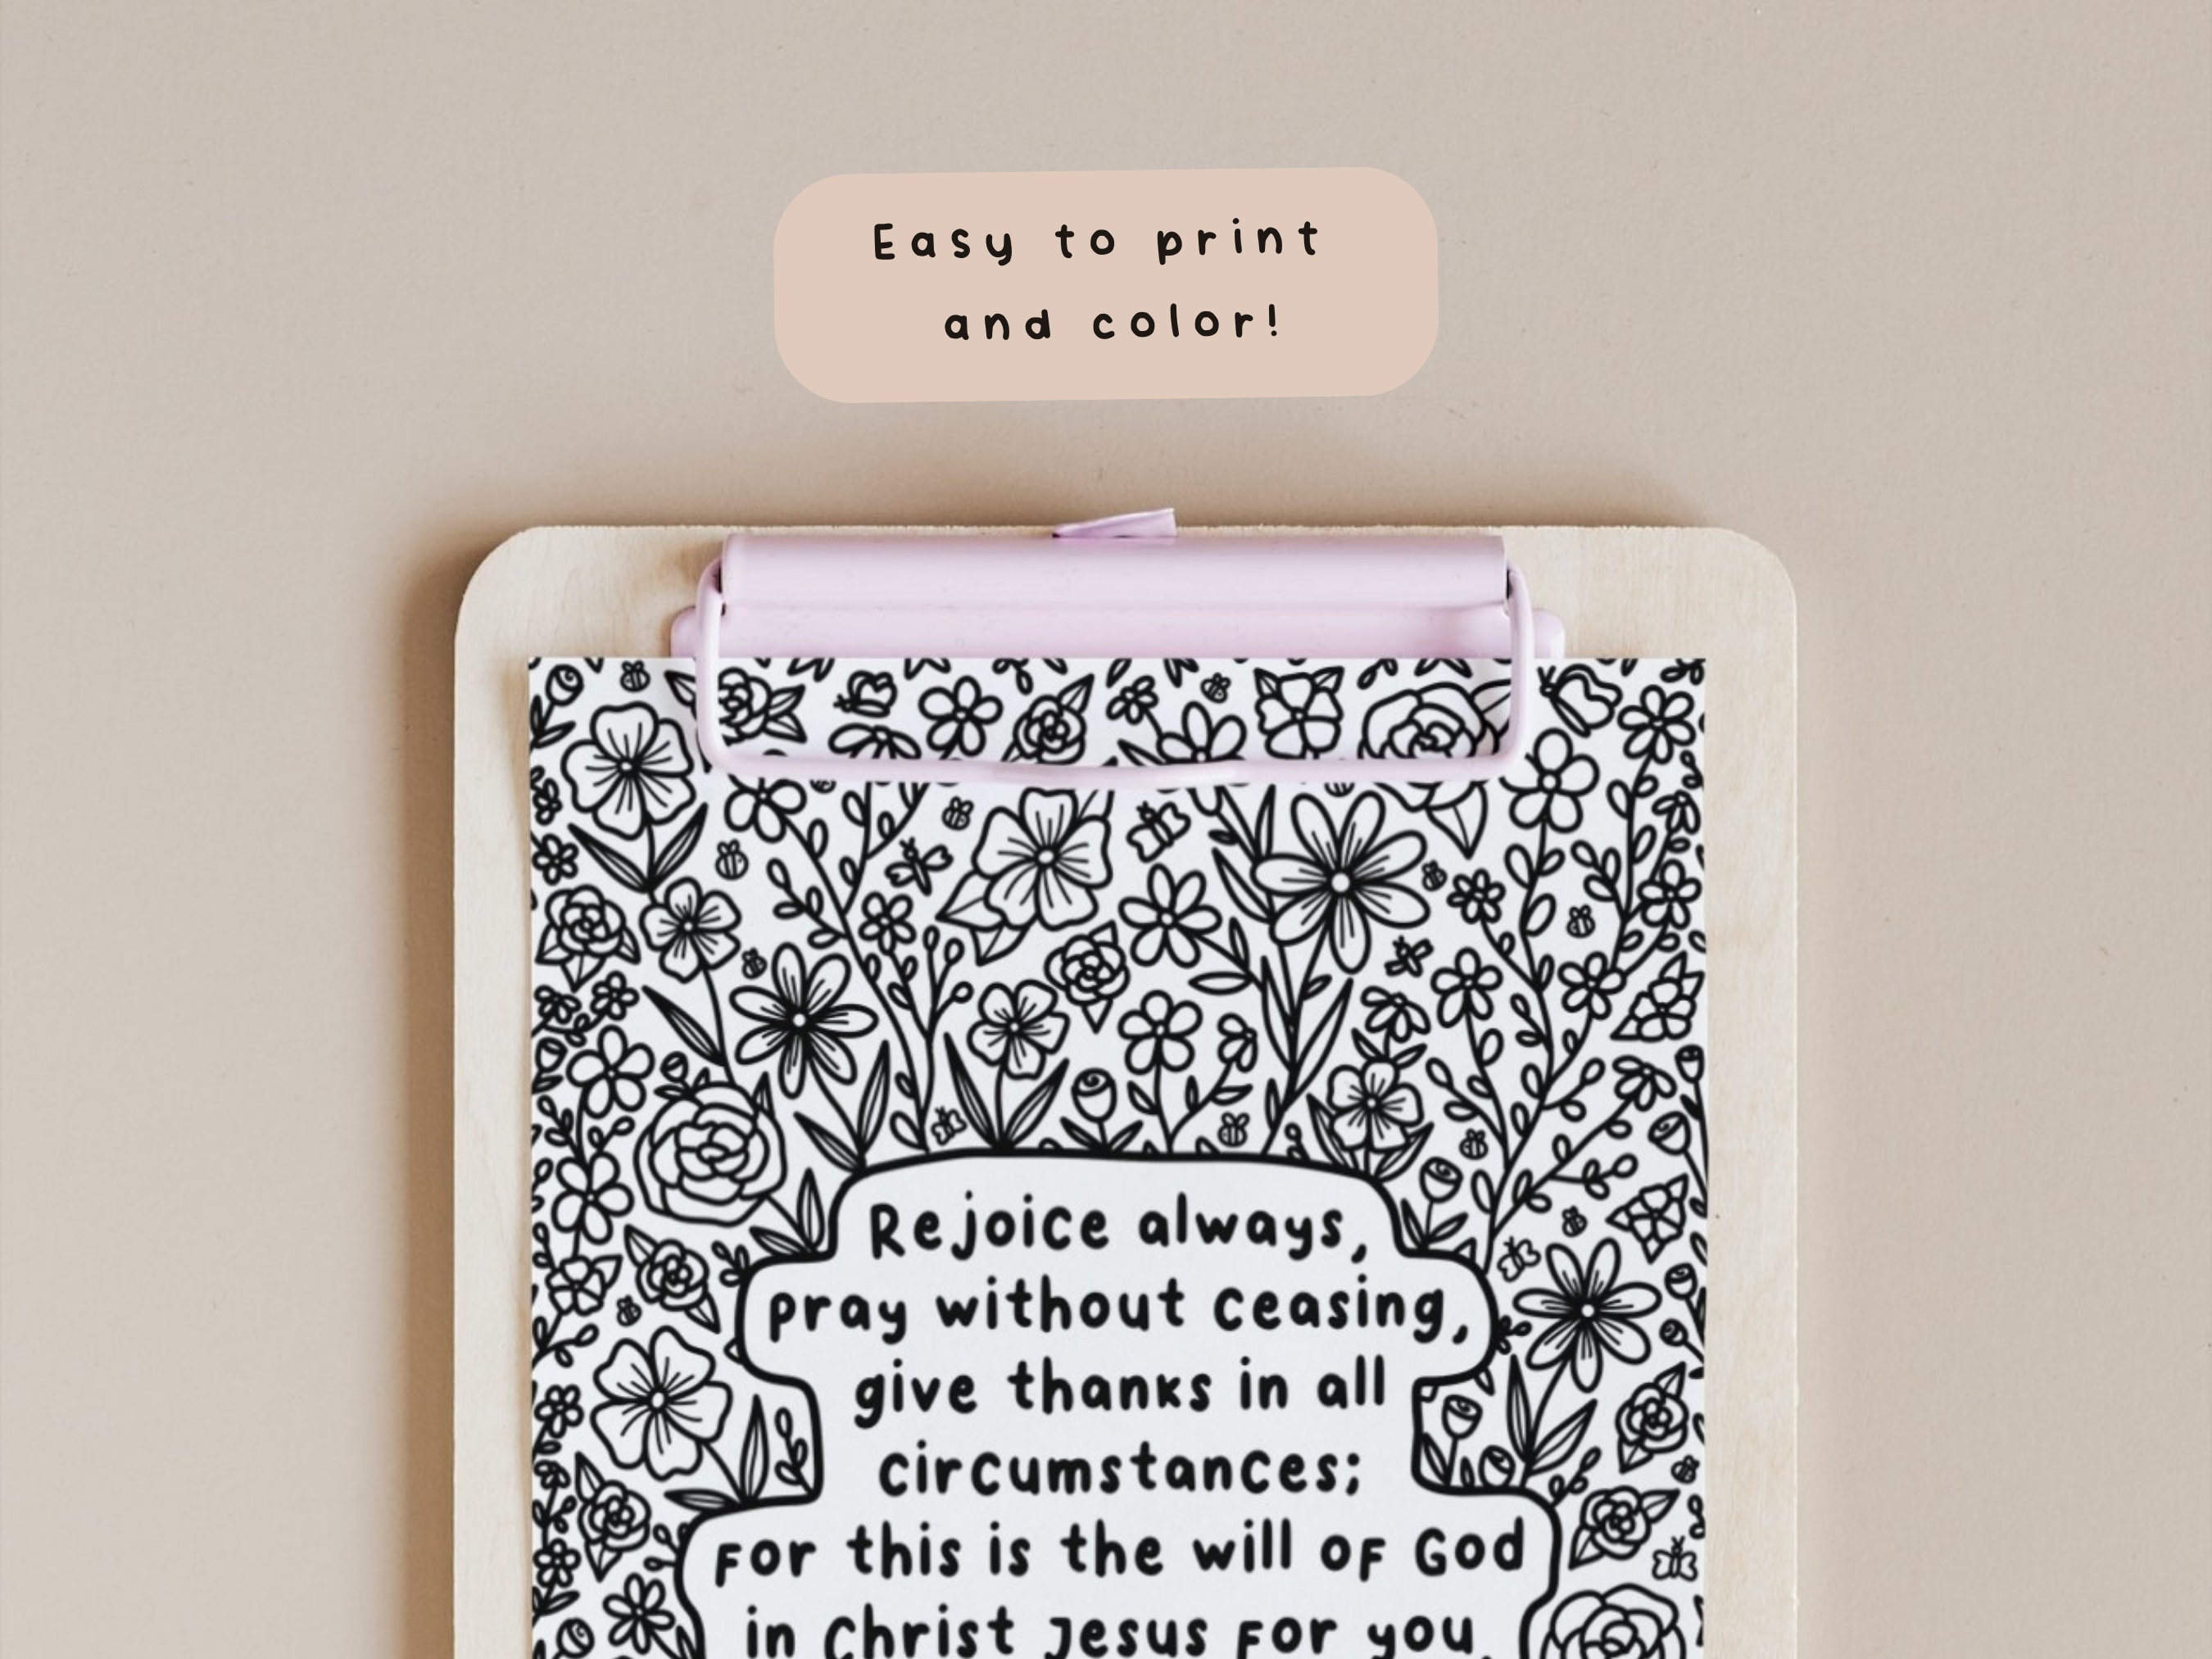 Easy to print
and color!
Rejoice always,
pray without ceasing,
give thanks in all
circumstances;
For this is the will of God
in Christ Jesus For you.